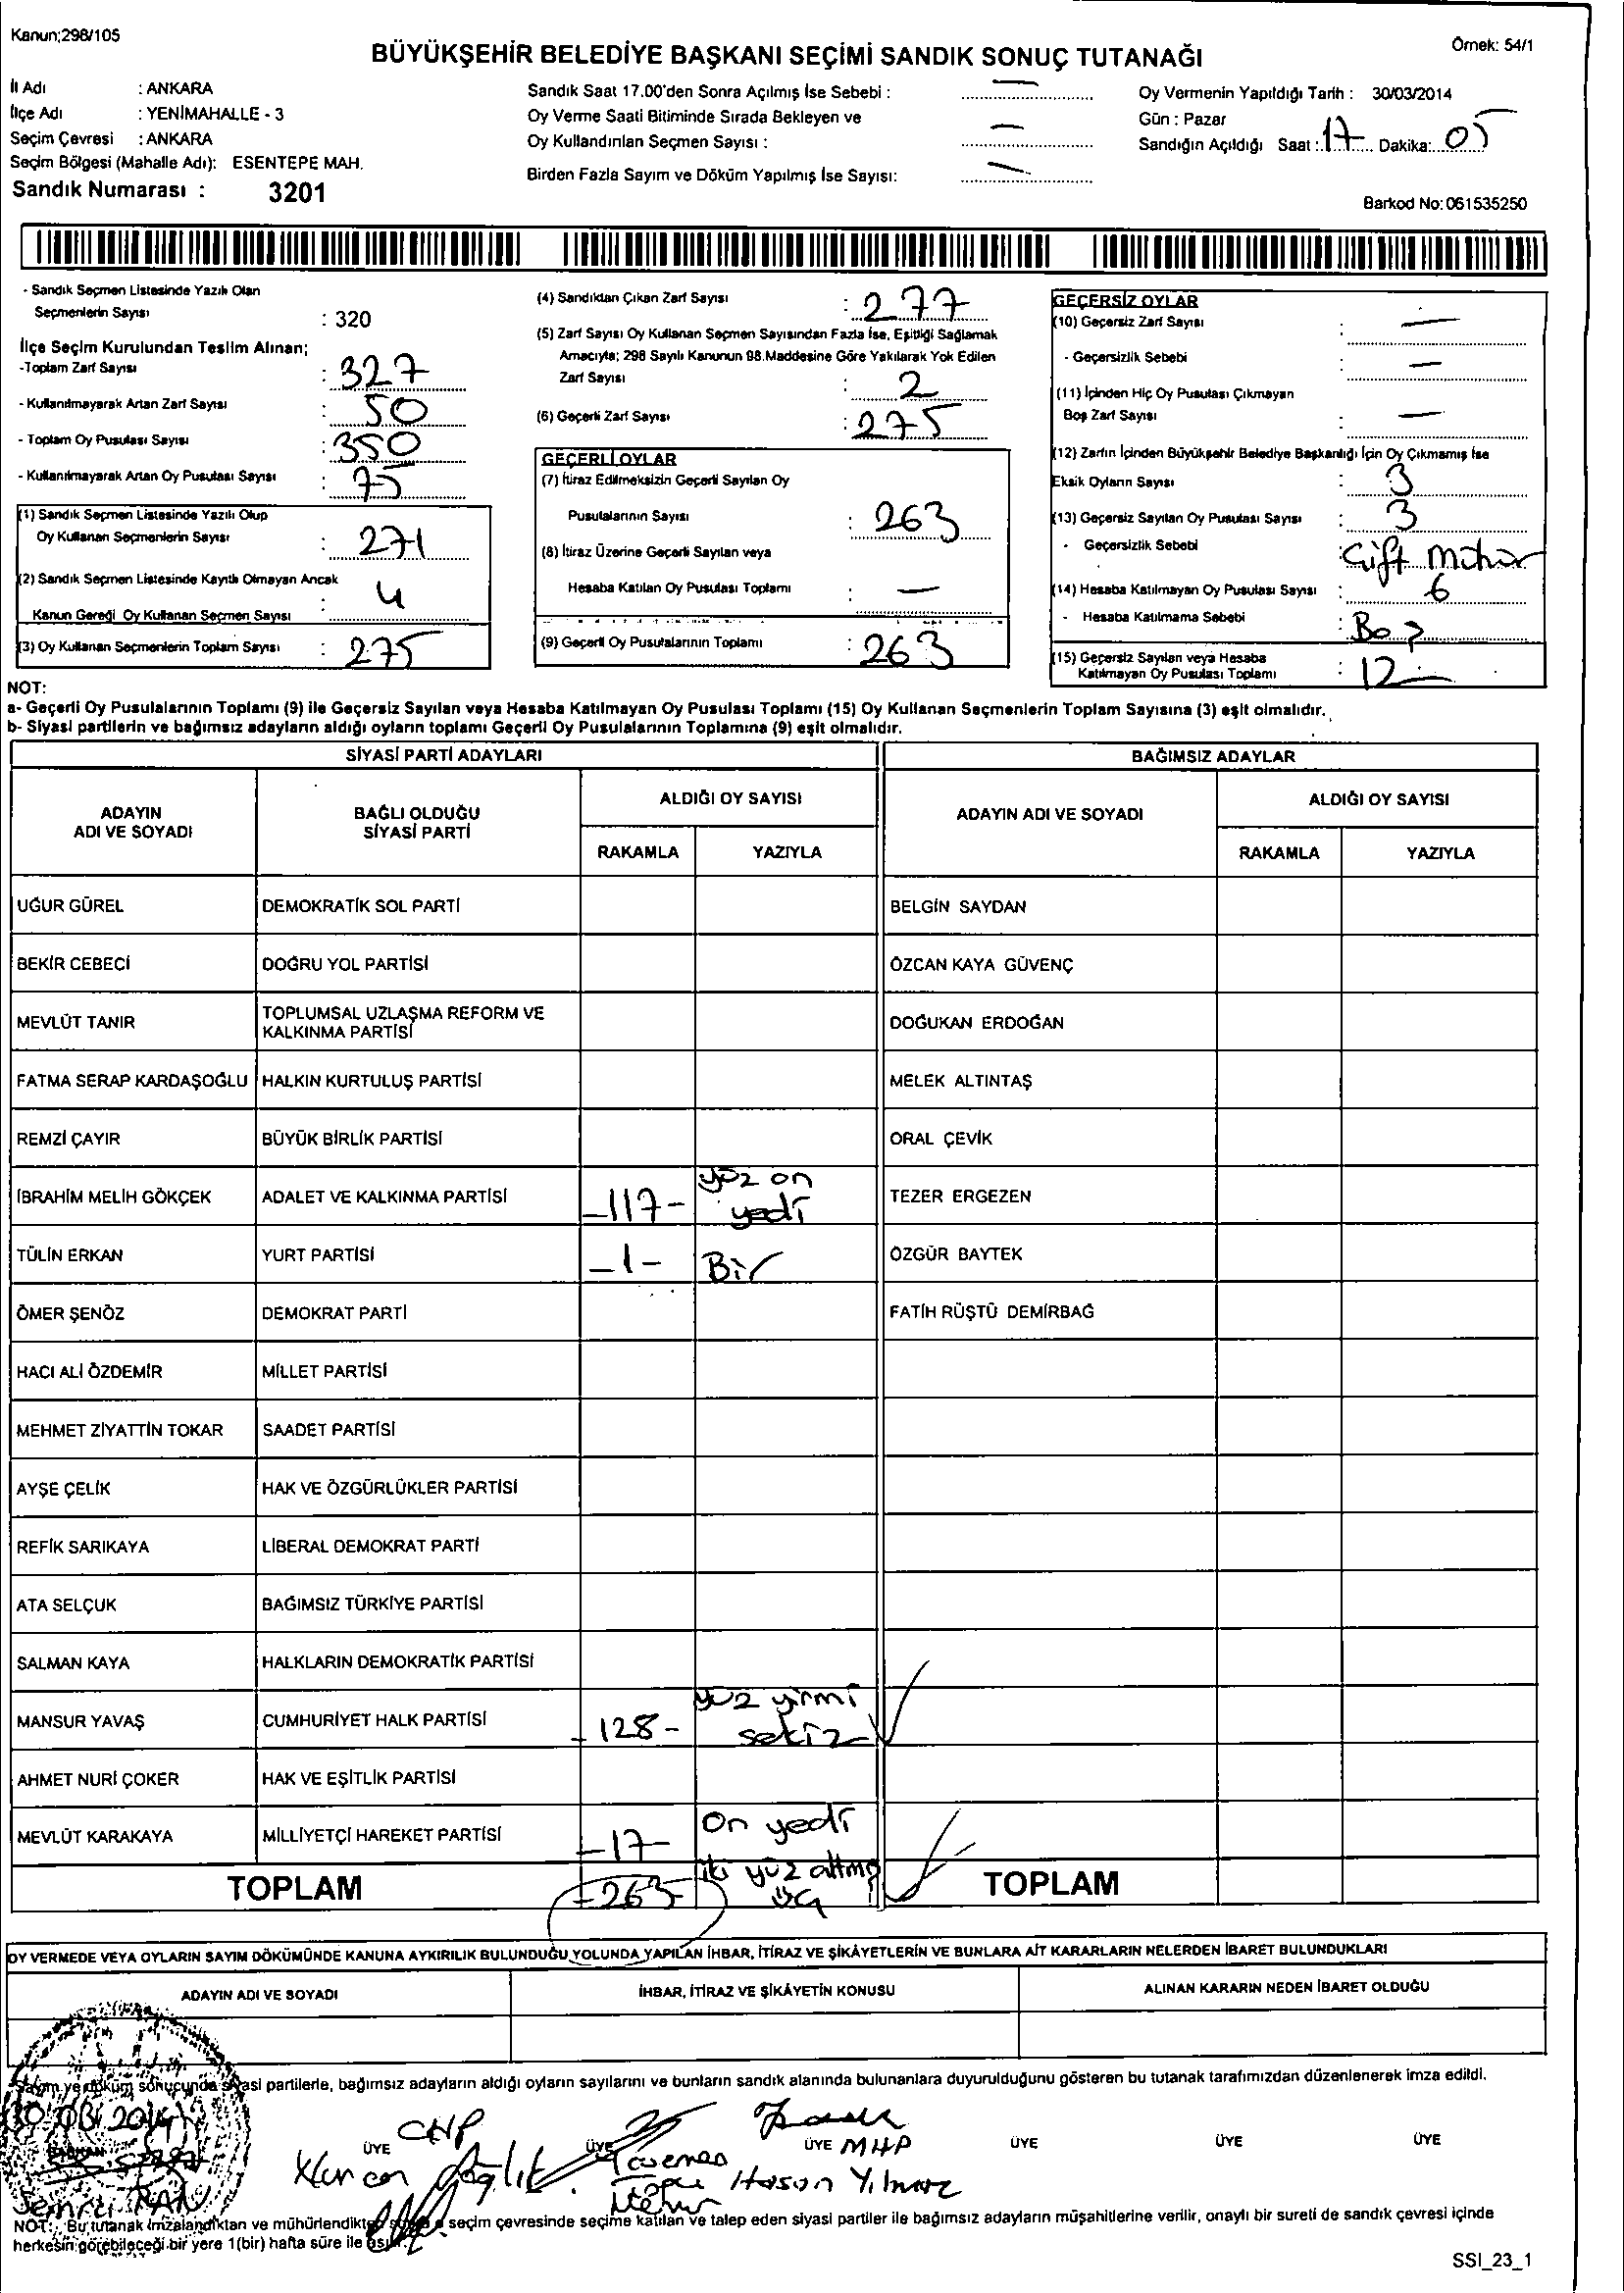 Kanun;298/105
Örnek: 54/1
BÜYÜKŞEHİR BELEDİYE BAŞKANI SEÇİMİ SANDIK SONUÇ TUTANAĞI
İl Adı : ANKARA
İlçe Adı : YENİMAHALLE - 3
Seçim Çevresi : ANKARA
Seçim Bölgesi (Mahalle Adı): ESENTEPE MAH.
Sandık Numarası : 3201
Sandık Saat 17.00'den Sonra Açılmış İse Sebebi : —
Oy Verme Saati Bitiminde Sırada Bekleyen ve
Oy Kullandırılan Seçmen Sayısı : —
Birden Fazla Sayım ve Döküm Yapılmış İse Sayısı: —
Oy Vermenin Yapıldığı Tarih : 30/03/2014
Gün : Pazar
Sandığın Açıldığı Saat : 17 Dakika: 05
Barkod No: 061535250
- Sandık Seçmen Listesinde Yazılı Olan
Seçmenlerin Sayısı : 320
İlçe Seçim Kurulundan Teslim Alınan;
-Toplam Zarf Sayısı : 327
- Kullanılmayarak Artan Zarf Sayısı : 50
- Toplam Oy Pusulası Sayısı : 350
- Kullanılmayarak Artan Oy Pusulası Sayısı : 75
(1) Sandık Seçmen Listesinde Yazılı Olup
Oy Kullanan Seçmenlerin Sayısı : 271
(2) Sandık Seçmen Listesinde Kayıtlı Olmayan Ancak
Kanun Gereği Oy Kullanan Seçmen Sayısı : 4
(3) Oy Kullanan Seçmenlerin Toplam Sayısı : 275
(4) Sandıktan Çıkan Zarf Sayısı : 277
(5) Zarf Sayısı Oy Kullanan Seçmen Sayısından Fazla İse, Eşitliği Sağlamak
Amacıyla; 298 Sayılı Kanunun 98.Maddesine Göre Yakılarak Yok Edilen
Zarf Sayısı : 2
(6) Geçerli Zarf Sayısı : 275
GEÇERLİ OYLAR
(7) İtiraz Edilmeksizin Geçerli Sayılan Oy
Pusulalarının Sayısı : 263
(8) İtiraz Üzerine Geçerli Sayılan veya
Hesaba Katılan Oy Pusulası Toplamı : —
(9) Geçerli Oy Pusulalarının Toplamı : 263
GEÇERSİZ OYLAR
(10) Geçersiz Zarf Sayısı : —
- Geçersizlik Sebebi : —
(11) İçinden Hiç Oy Pusulası Çıkmayan
Boş Zarf Sayısı : —
(12) Zarfın İçinden Büyükşehir Belediye Başkanlığı İçin Oy Çıkmamış İse
Eksik Oyların Sayısı : 3
(13) Geçersiz Sayılan Oy Pusulası Sayısı : 3
- Geçersizlik Sebebi : Çift Mühür
(14) Hesaba Katılmayan Oy Pusulası Sayısı : 6
- Hesaba Katılmama Sebebi : Boş
(15) Geçersiz Sayılan veya Hesaba
Katılmayan Oy Pusulası Toplamı : 12
NOT:
a- Geçerli Oy Pusulalarının Toplamı (9) ile Geçersiz Sayılan veya Hesaba Katılmayan Oy Pusulası Toplamı (15) Oy Kullanan Seçmenlerin Toplam Sayısına (3) eşit olmalıdır.
b- Siyasi partilerin ve bağımsız adayların aldığı oyların toplamı Geçerli Oy Pusulalarının Toplamına (9) eşit olmalıdır.
SİYASİ PARTİ ADAYLARI BAĞIMSIZ ADAYLAR
ADAYIN ADI VE SOYADI BAĞLI OLDUĞU SİYASİ PARTİ ALDIĞI OY SAYISI ADAYIN ADI VE SOYADI ALDIĞI OY SAYISI
RAKAMLA YAZIYLA RAKAMLA YAZIYLA
UĞUR GÜREL DEMOKRATİK SOL PARTİ BELGİN SAYDAN
BEKİR CEBECİ DOĞRU YOL PARTİSİ ÖZCAN KAYA GÜVENÇ
MEVLÜT TANIR TOPLUMSAL UZLAŞMA REFORM VE KALKINMA PARTİSİ DOĞUKAN ERDOĞAN
FATMA SERAP KARDAŞOĞLU HALKIN KURTULUŞ PARTİSİ MELEK ALTINTAŞ
REMZİ ÇAYIR BÜYÜK BİRLİK PARTİSİ ORAL ÇEVİK
İBRAHİM MELİH GÖKÇEK ADALET VE KALKINMA PARTİSİ -117- yüz on yedi TEZER ERGEZEN
TÜLİN ERKAN YURT PARTİSİ -1- Bir ÖZGÜR BAYTEK
ÖMER ŞENÖZ DEMOKRAT PARTİ FATİH RÜŞTÜ DEMİRBAĞ
HACI ALİ ÖZDEMİR MİLLET PARTİSİ
MEHMET ZİYATTİN TOKAR SAADET PARTİSİ
AYŞE ÇELİK HAK VE ÖZGÜRLÜKLER PARTİSİ
REFİK SARIKAYA LİBERAL DEMOKRAT PARTİ
ATA SELÇUK BAĞIMSIZ TÜRKİYE PARTİSİ
SALMAN KAYA HALKLARIN DEMOKRATİK PARTİSİ
MANSUR YAVAŞ CUMHURİYET HALK PARTİSİ -128- yüz yirmi sekiz
AHMET NURİ ÇOKER HAK VE EŞİTLİK PARTİSİ
MEVLÜT KARAKAYA MİLLİYETÇİ HAREKET PARTİSİ -17- on yedi
TOPLAM -263- iki yüz altmış üç TOPLAM
OY VERMEDE VEYA OYLARIN SAYIM DÖKÜMÜNDE KANUNA AYKIRILIK BULUNDUĞU YOLUNDA YAPILAN İHBAR, İTİRAZ VE ŞİKÂYETLERİN VE BUNLARA AİT KARARLARIN NELERDEN İBARET BULUNDUKLARI
ADAYIN ADI VE SOYADI İHBAR, İTİRAZ VE ŞİKÂYETİN KONUSU ALINAN KARARIN NEDEN İBARET OLDUĞU
Sayım ve döküm sonucunda siyasi partilerle, bağımsız adayların aldığı oyların sayılarını ve bunların sandık alanında bulunanlara duyurulduğunu gösteren bu tutanak tarafımızdan düzenlenerek imza edildi.
BAŞKAN ÜYE CHP ÜYE ÜYE MHP ÜYE ÜYE ÜYE
Hasan Yılmaz
NOT: Bu tutanak imzalandıktan ve mühürlendikten seçim çevresinde seçime katılan ve talep eden siyasi partiler ile bağımsız adayların müşahitlerine verilir, onaylı bir sureti de sandık çevresi içinde
herkesin görebileceği bir yere 1(bir) hafta süre ile
SSI_23_1